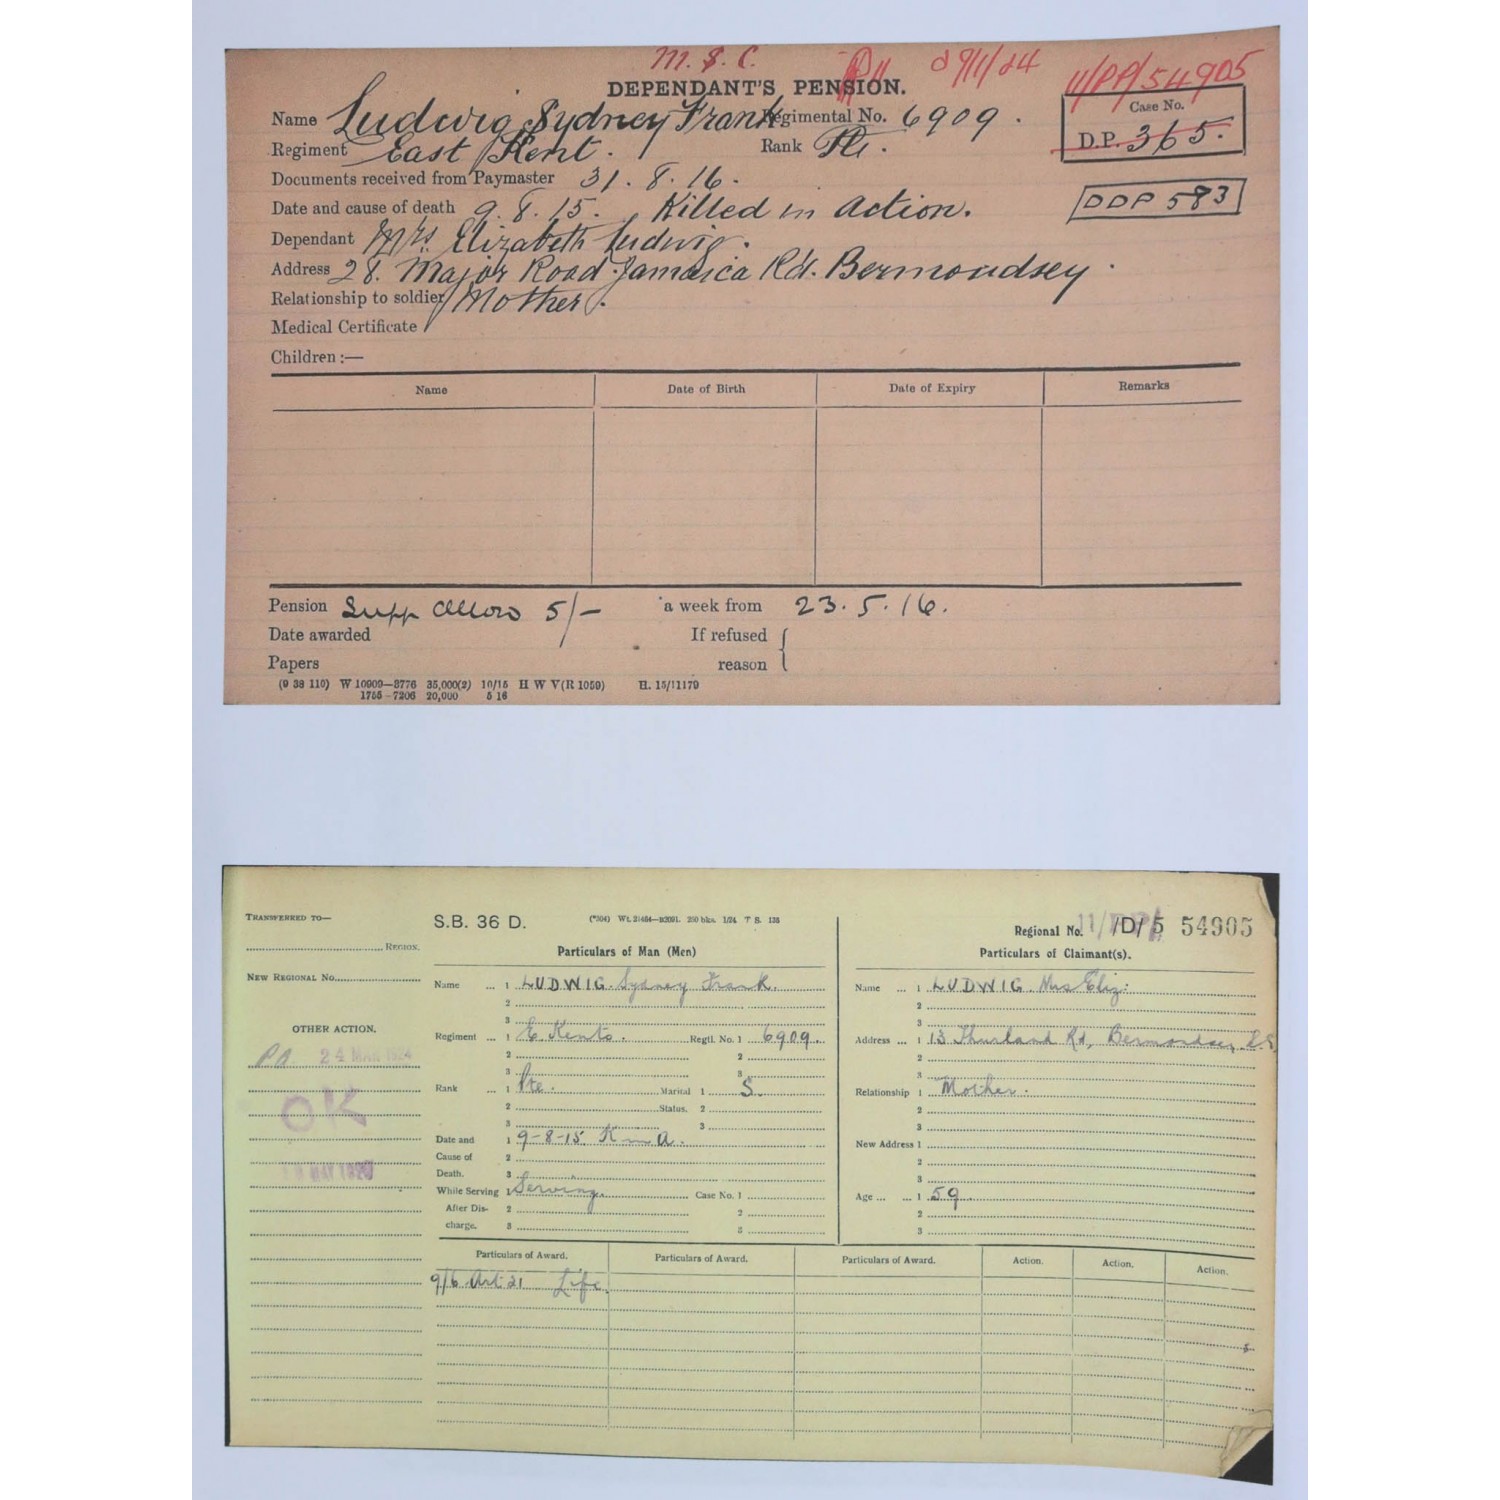 M. S. C. 29/1/24 11/PP/54905
DEPENDANT'S PENSION.
Name Ludwig Sydney Frank Regimental No. 6909.
Case No.
D.P. 365.
Regiment East Kent. Rank Pte.
Documents received from Paymaster 31. 8. 16.
DDP 583
Date and cause of death 9. 8. 15. Killed in Action.
Dependant Mrs. Elizabeth Ludwig.
Address 28. Major Road. Jamaica Rd. Bermondsey.
Relationship to soldier Mother.
Medical Certificate
Children :—
Name Date of Birth Date of Expiry Remarks
Pension Supp Allow 5/- a week from 23. 5. 16.
Date awarded If refused
Papers reason
(9 38 110) W 10909—3776 35,000(2) 10/15 H W V(R 1059) H. 15/11179
1755—7206 20,000 5 16
TRANSFERRED TO—
REGION.
NEW REGIONAL NO.
OTHER ACTION.
P.A. 24 MAR 1924
OK
MAY
S.B. 36 D. (*304) Wt. 21464—B2091. 250 bks. 1/24 T S. 135
Particulars of Man (Men)
Name ... 1 LUDWIG. Sydney Frank.
2
3
Regiment ... 1 E. Kents. Regtl. No. 1 6909.
2 2
3 3
Rank ... 1 Pte. Marital 1 S.
2 Status. 2
3 3
Date and 1 9-8-15 K in A.
Cause of 2
Death. 3
While Serving 1 Serving. Case No. 1
After Dis- 2 2
charge. 3 3
Regional No. 11/PP/ /D/5 54905
Particulars of Claimant(s).
Name ... 1 LUDWIG. Mrs Eliz:
2
3
Address ... 1 13 Thurland Rd, Bermondsey, S.E.
2
3
Relationship 1 Mother.
2
3
New Address 1
2
3
Age ... ... 1 59.
2
3
Particulars of Award. Particulars of Award. Particulars of Award. Action. Action. Action.
9/6 Art 21 Life.